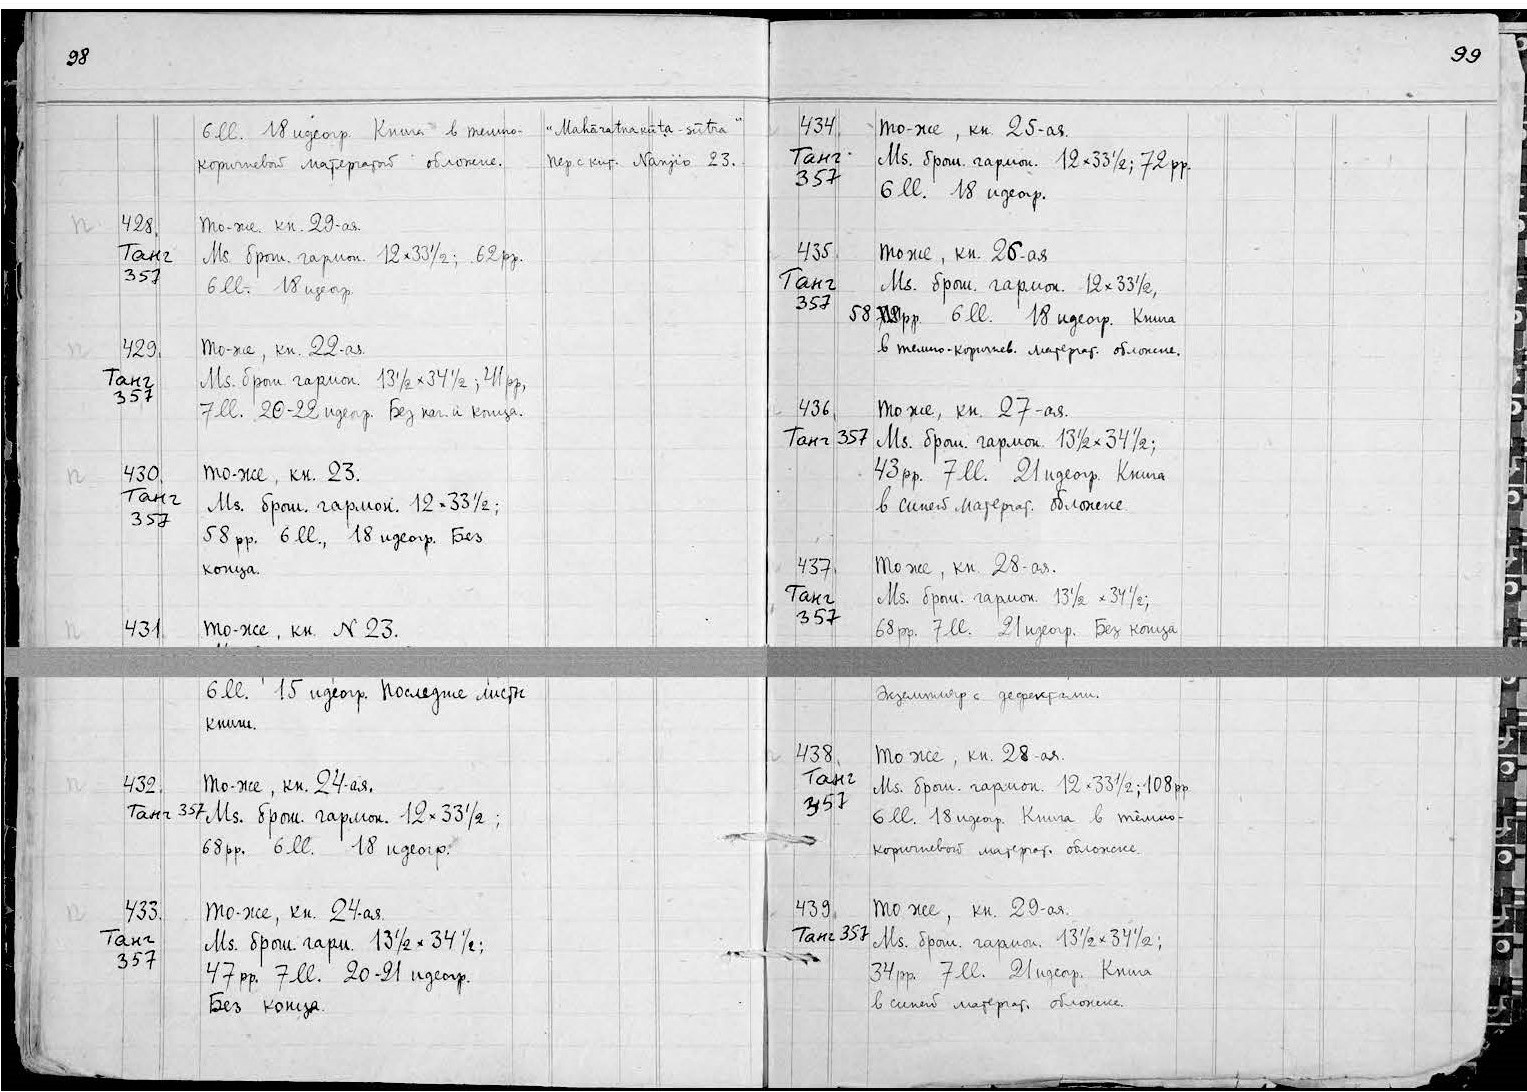 98
6 ll. 18 идеогр. Книга в темно-
коричневой матерчатой обложке.
"Mahāratnakūṭa-sūtra"
пер. с кит. Nanjio 23.
428. То-же. кн. 29-ая.
Танг Ms. брош. гармон. 12×33½; 62 pp.
357 6 ll. 18 идеогр.
429. То-же, кн. 22-ая.
Танг Ms. брош. гармон. 13½×34½; 41 pp,
357 7 ll. 20-22 идеогр. Без нач. и конца.
430. То-же, кн. 23.
Танг Ms. брош. гармон. 12×33½;
357 58 pp. 6 ll., 18 идеогр. Без
конца.
431. То-же, кн. N 23.
6 ll. 15 идеогр. Последние листы
книги.
432. То-же, кн. 24-ая.
Танг 357 Ms. брош. гармон. 12×33½;
68 pp. 6 ll. 18 идеогр.
433. То-же, кн. 24-ая.
Танг Ms. брош. гарм. 13½×34½;
357 47 pp. 7 ll. 20-21 идеогр.
Без конца.
99
434. То-же, кн. 25-ая.
Танг Ms. брош. гармон. 12×33½; 72 pp.
357 6 ll. 18 идеогр.
435. То же, кн. 26-ая
Танг Ms. брош. гармон. 12×33½,
357 58 pp. 6 ll. 18 идеогр. Книга
в темно-коричнев. матерчат. обложке.
436. То же, кн. 27-ая.
Танг 357 Ms. брош. гармон. 13½×34½;
43 pp. 7 ll. 21 идеогр. Книга
в синей матерчат. обложке
437. То же, кн. 28-ая.
Танг Ms. брош. гармон. 13½×34½;
357 68 pp. 7 ll. 21 идеогр. Без конца
Экземпляр с дефектами.
438. То же, кн. 28-ая.
Танг Ms. брош. гармон. 12×33½; 108 pp
357 6 ll. 18 идеогр. Книга в тёмно-
коричневой матерчат. обложке.
439. То же, кн. 29-ая.
Танг 357 Ms. брош. гармон. 13½×34½;
34 pp. 7 ll. 21 идеогр. Книга
в синей матерчат. обложке.